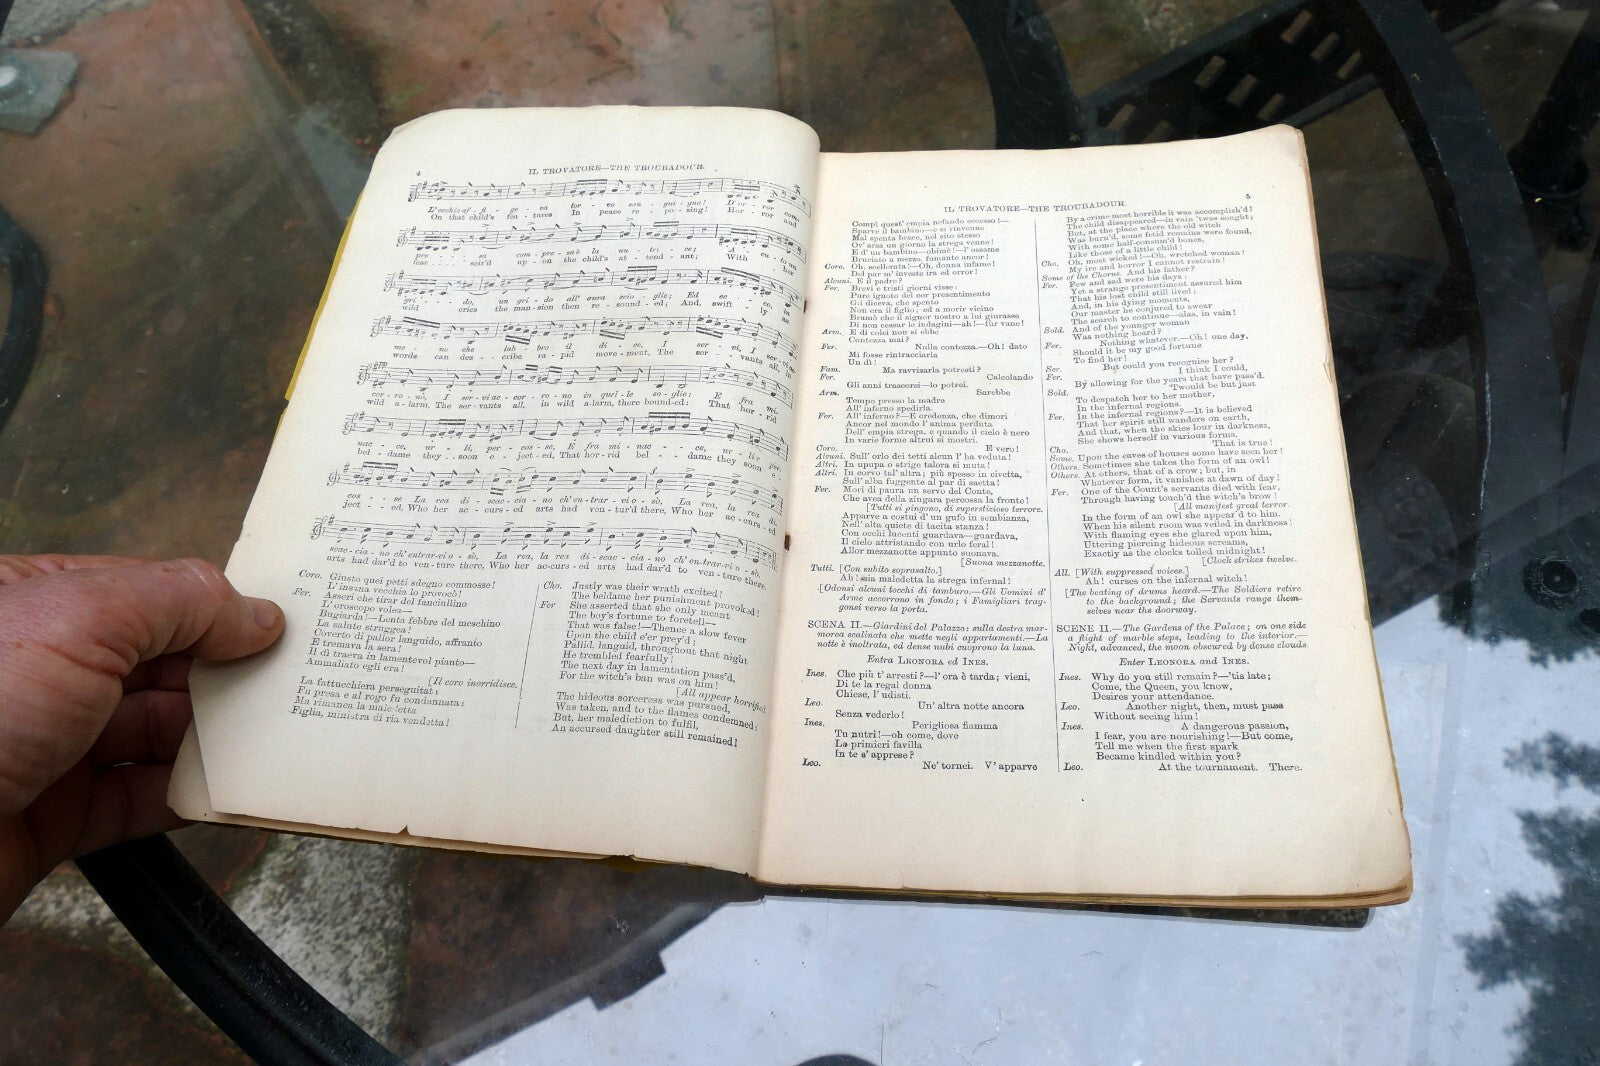 4
IL TROVATORE—THE TROUBADOUR.
L'occhio af - fi - ge - va tor - vo san - gui - gno! D'or - ror
On that child's fea - tures In peace re - po - sing! Hor - ror and
pre - so com - pres - a è la nu - tri - ce;
fear seiz'd up - on the child's at - tend - ant; With her
gri - do, un gri - do all' aura scio - glie; Ed ec - co, in
wild cries the man-sion then re - sound - ed; And, swift - ly as
me - no che lab - bro il di - ce, I ser - vi, I ser - vi ac
words can des - cribe ra - pid move - ment, The ser - vants all, in
cor - ro - no, I ser - vi ac - cor - ro - no in quel - le so - glie; E fra mi
wild a-larm, The ser-vants all, in wild a-larm, there bound-ed: That hor - rid
nac - ce, ur - li, per - cos - se, E fra mi - nac - ce, ur - li e per
bel - dame they soon e - ject-ed, That hor-rid bel - dame they soon
cos - se La rea di - scac - cia - no ch' en - trar - vi o - sò. La rea, la rea di
ject - ed, Who her ac - curs - ed arts had ven - tur'd there, Who her ac - curs - ed
scac - cia - no ch' en - trar - vi o - sò, La rea, la rea di - scac - cia - no ch' en - trar - vi o - sò.
arts had dar'd to ven - ture there, Who her ac-curs - ed arts had dar'd to ven - ture there.
Coro. Giusto quei petti sdegno commosse!
L'insana vecchia lo provocò!
Fer. Asserì che tirar del fanciullino
L'oroscopo volea—
Bugiarda!—Lenta febbre del meschino
La salute struggea!
Coverto di pallor languido, affranto
E tremava la sera!
Il dì traeva in lamentevol pianto—
Ammaliato egli era!
[Il coro inorridisce.
La fattucchiera perseguitata
Fu presa e al rogo fu condannata:
Ma rimanea la maledetta
Figlia, ministra di ria vendetta!
Cho. Justly was their wrath excited!
The beldame her punishment provoked!
Fer She asserted that she only meant
The boy's fortune to foretell—
That was false!—Thence a slow fever
Upon the child e'er prey'd;
Pallid, languid, throughout that night
He trembled fearfully!
The next day in lamentation pass'd,
For the witch's ban was on him!
[All appear horrified
The hideous sorceress was pursued,
Was taken, and to the flames condemned;
But, her malediction to fulfil,
An accursed daughter still remained!
5
IL TROVATORE—THE TROUBADOUR.
Compì quest' empia nefando eccesso!—
Sparve il bambino—e si rinvenne
Mal spenta brace, nel sito stesso
Ov' arsa un giorno la strega venne!
E d' un bambino—ohimè!—l' ossame
Bruciato a mezzo, fumante ancor!
Coro. Oh, scellerata!—Oh, donna infame!
Del par m' investe ira ed orror!
Alcuni. E il padre?
Fer. Brevi e tristi giorni visse:
Pure ignoto del cor presentimento
Gli diceva, che spento
Non era il figlio; ed a morir vicino
Bramò che il signor nostro a lui giurasse
Di non cessar le indagini—ah!—fur vane!
Arm. E di colei non si ebbe
Contezza mai?
Fer. Nulla contezza.—Oh! dato
Mi fosse rintracciarla
Un dì!
Fam. Ma ravvisarla potresti?
Fer. Calcolando
Gli anni trascorsi—lo potrei.
Arm. Sarebbe
Tempo presso la madre
All' inferno spedirla.
Fer. All' inferno?—E credenza, che dimori
Ancor nel mondo l' anima perduta
Dell' empia strega, e quando il cielo è nero
In varie forme altrui si mostri.
Coro. E vero!
Alcuni. Sull' orlo dei tetti alcun l' ha veduta!
Altri. In upupa o strige talora si muta!
Altri. In corvo tal' altra; più spesso in civetta,
Sull' alba fuggente al par di saetta!
Fer. Morì di paura un servo del Conte,
Che avea della zingara percossa la fronte!
[Tutti si pingono, di superstizioso terrore.
Apparve a costui d' un gufo in sembianza,
Nell' alta quiete di tacita stanza!
Con occhi lucenti guardava—guardava,
Il cielo attristando con urlo feral!
Allor mezzanotte appunto suonava.
[Suona mezzanotte.
Tutti. [Con subito soprasalto.]
Ah! sia maledetta la strega infernal!
[Odonsi alcuni tocchi di tamburo.—Gli Uomini d'
Arme accorrono in fondo; i Famigliari trag-
gonsi verso la porta.
SCENA II.—Giardini del Palazzo: sulla destra mar-
morea scalinata che mette negli appartamenti.—La
notte è inoltrata, ed dense nubi cuoprono la luna.
Entra LEONORA ed INES.
Ines. Che più t' arresti?—l' ora è tarda; vieni,
Di te la regal donna
Chiese, l' udisti.
Leo. Un' altra notte ancora
Senza vederlo!
Ines. Perigliosa fiamma
Tu nutri!—oh come, dove
La primieri favilla
In te s' apprese?
Leo. Ne' tornei. V' apparve
By a crime most horrible it was accomplish'd!
The child disappeared—in vain 'twas sought;
But, at the place where the old witch
Was burn'd, some fetid remains were found,
With some half-consum'd bones,
Like those of a little child!
Cho. Oh, most wicked!—Oh, wretched woman!
My ire and horror I cannot restrain!
Some of the Chorus. And his father?
Fer. Few and sad were his days;
Yet a strange presentiment assured him
That his lost child still lived;
And, in his dying moments,
Our master he conjured to swear
The search to continue—alas, in vain!
Sold. And of the younger woman
Was nothing heard?
Fer. Nothing whatever.—Oh! one day,
Should it be my good fortune
To find her!
Ser. But could you recognise her?
Fer. I think I could,
By allowing for the years that have pass'd.
Sold. 'Twould be but just
To despatch her to her mother,
In the infernal regions.
Fer. In the infernal regions?—It is believed
That her spirit still wanders on earth,
And that, when the skies lour in darkness,
She shows herself in various forms.
Cho. That is true!
Some. Upon the eaves of houses some have seen her!
Others. Sometimes she takes the form of an owl!
Others. At others, that of a crow; but, in
Whatever form, it vanishes at dawn of day!
Fer. One of the Count's servants died with fear,
Through having touch'd the witch's brow!
[All manifest great terror.
In the form of an owl she appear'd to him,
When his silent room was veiled in darkness!
With flaming eyes she glared upon him,
Uttering piercing hideous screams,
Exactly as the clocks tolled midnight!
[Clock strikes twelve.
All. [With suppressed voices.]
Ah! curses on the infernal witch!
[The beating of drums heard.—The Soldiers retire
to the background; the Servants range them-
selves near the doorway.
SCENE II.—The Gardens of the Palace; on one side
a flight of marble steps, leading to the interior.—
Night, advanced, the moon obscured by dense clouds
Enter LEONORA and INES.
Ines. Why do you still remain?—'tis late;
Come, the Queen, you know,
Desires your attendance.
Leo. Another night, then, must pass
Without seeing him!
Ines. A dangerous passion,
I fear, you are nourishing!—But come,
Tell me when the first spark
Became kindled within you?
Leo. At the tournament. There.